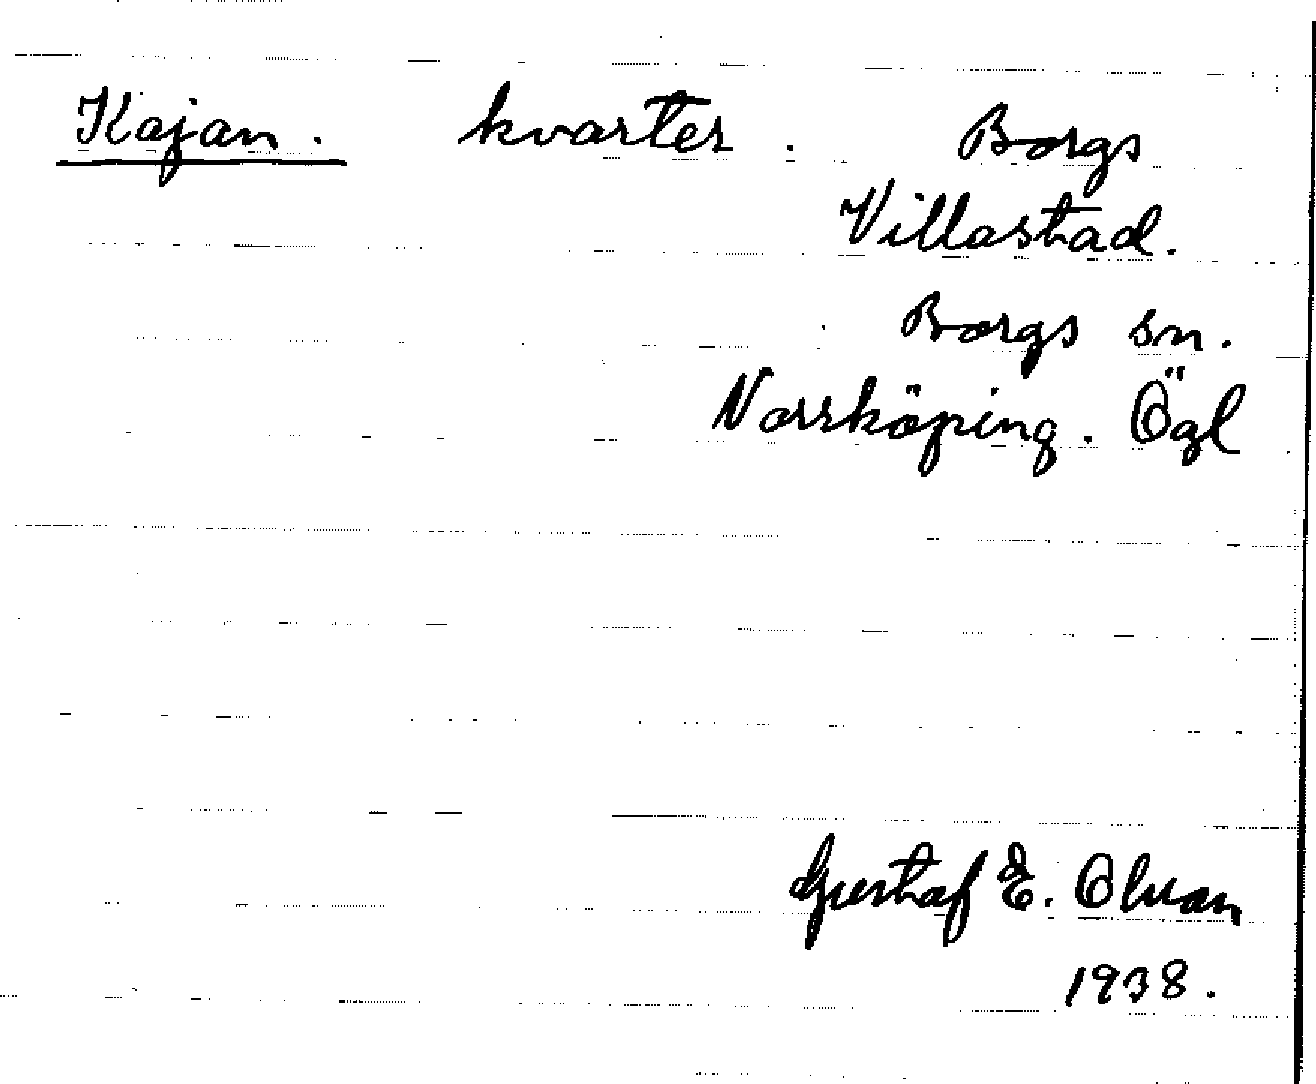 Kajan. kvarter. Borgs
Villastad.
Borgs sn.
Norrköping. Ögl
Gustaf E.
1938.